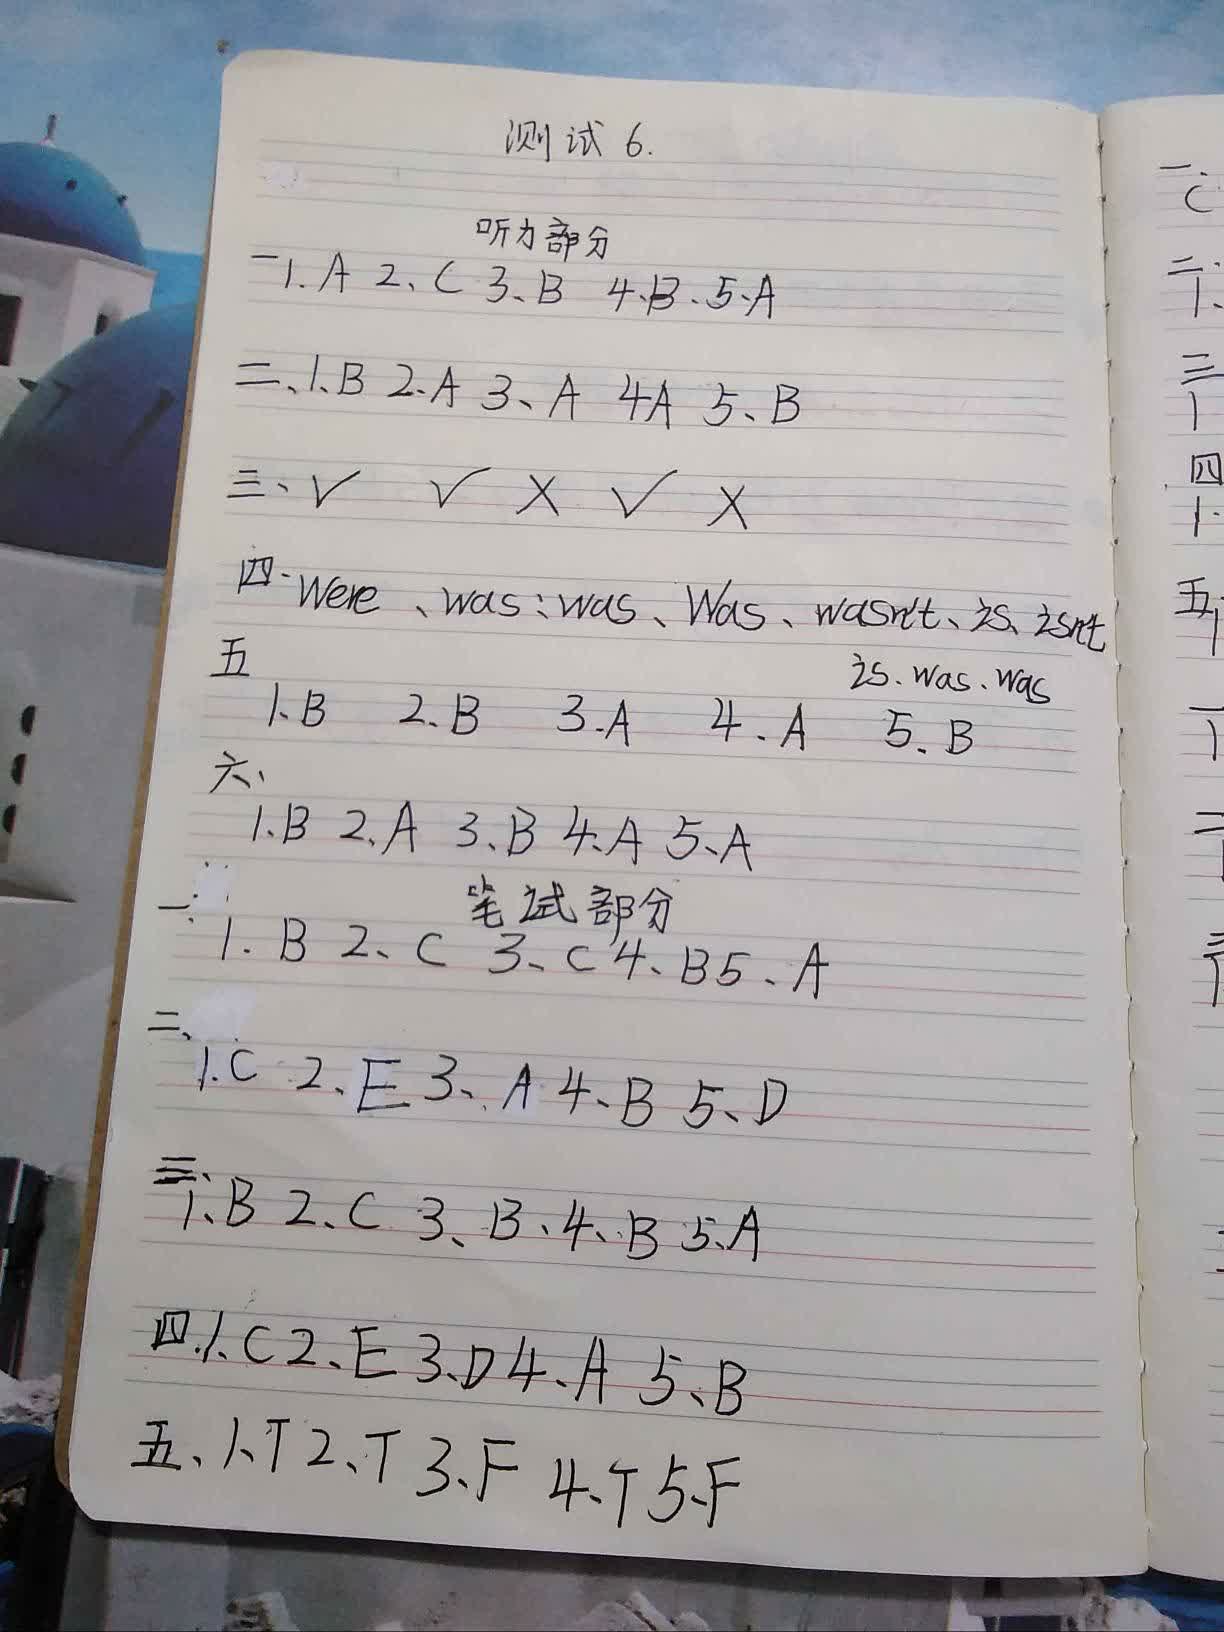 测试6.
听力部分
一1.A 2、C 3、B 4.B.5.A
二、1.B 2.A 3、A 4A 5、B
三、✓ ✓ X ✓ X
四.Were、was:was、Was、wasn't、is、isn't
is.was.was
五
1.B 2.B 3.A 4.A 5.B
六、
1.B 2.A 3.B 4.A 5.A
笔试部分
一.
1.B 2、C 3、C 4、B5.A
二、
1.C 2、E 3、A 4、B 5、D
三、
1、B 2、C 3、B、4、B 5.A
四.1.C 2、E 3.D 4、A 5、B
五、1.T 2、T 3、F 4、T 5.F
一.
C
二.
1.
三
1
四
1.
五
1
一
1
二
三
1